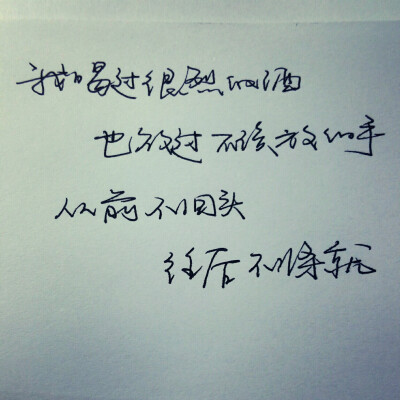 我喝过很烈的酒
也放过不该放的手
从前不回头
往后不将就